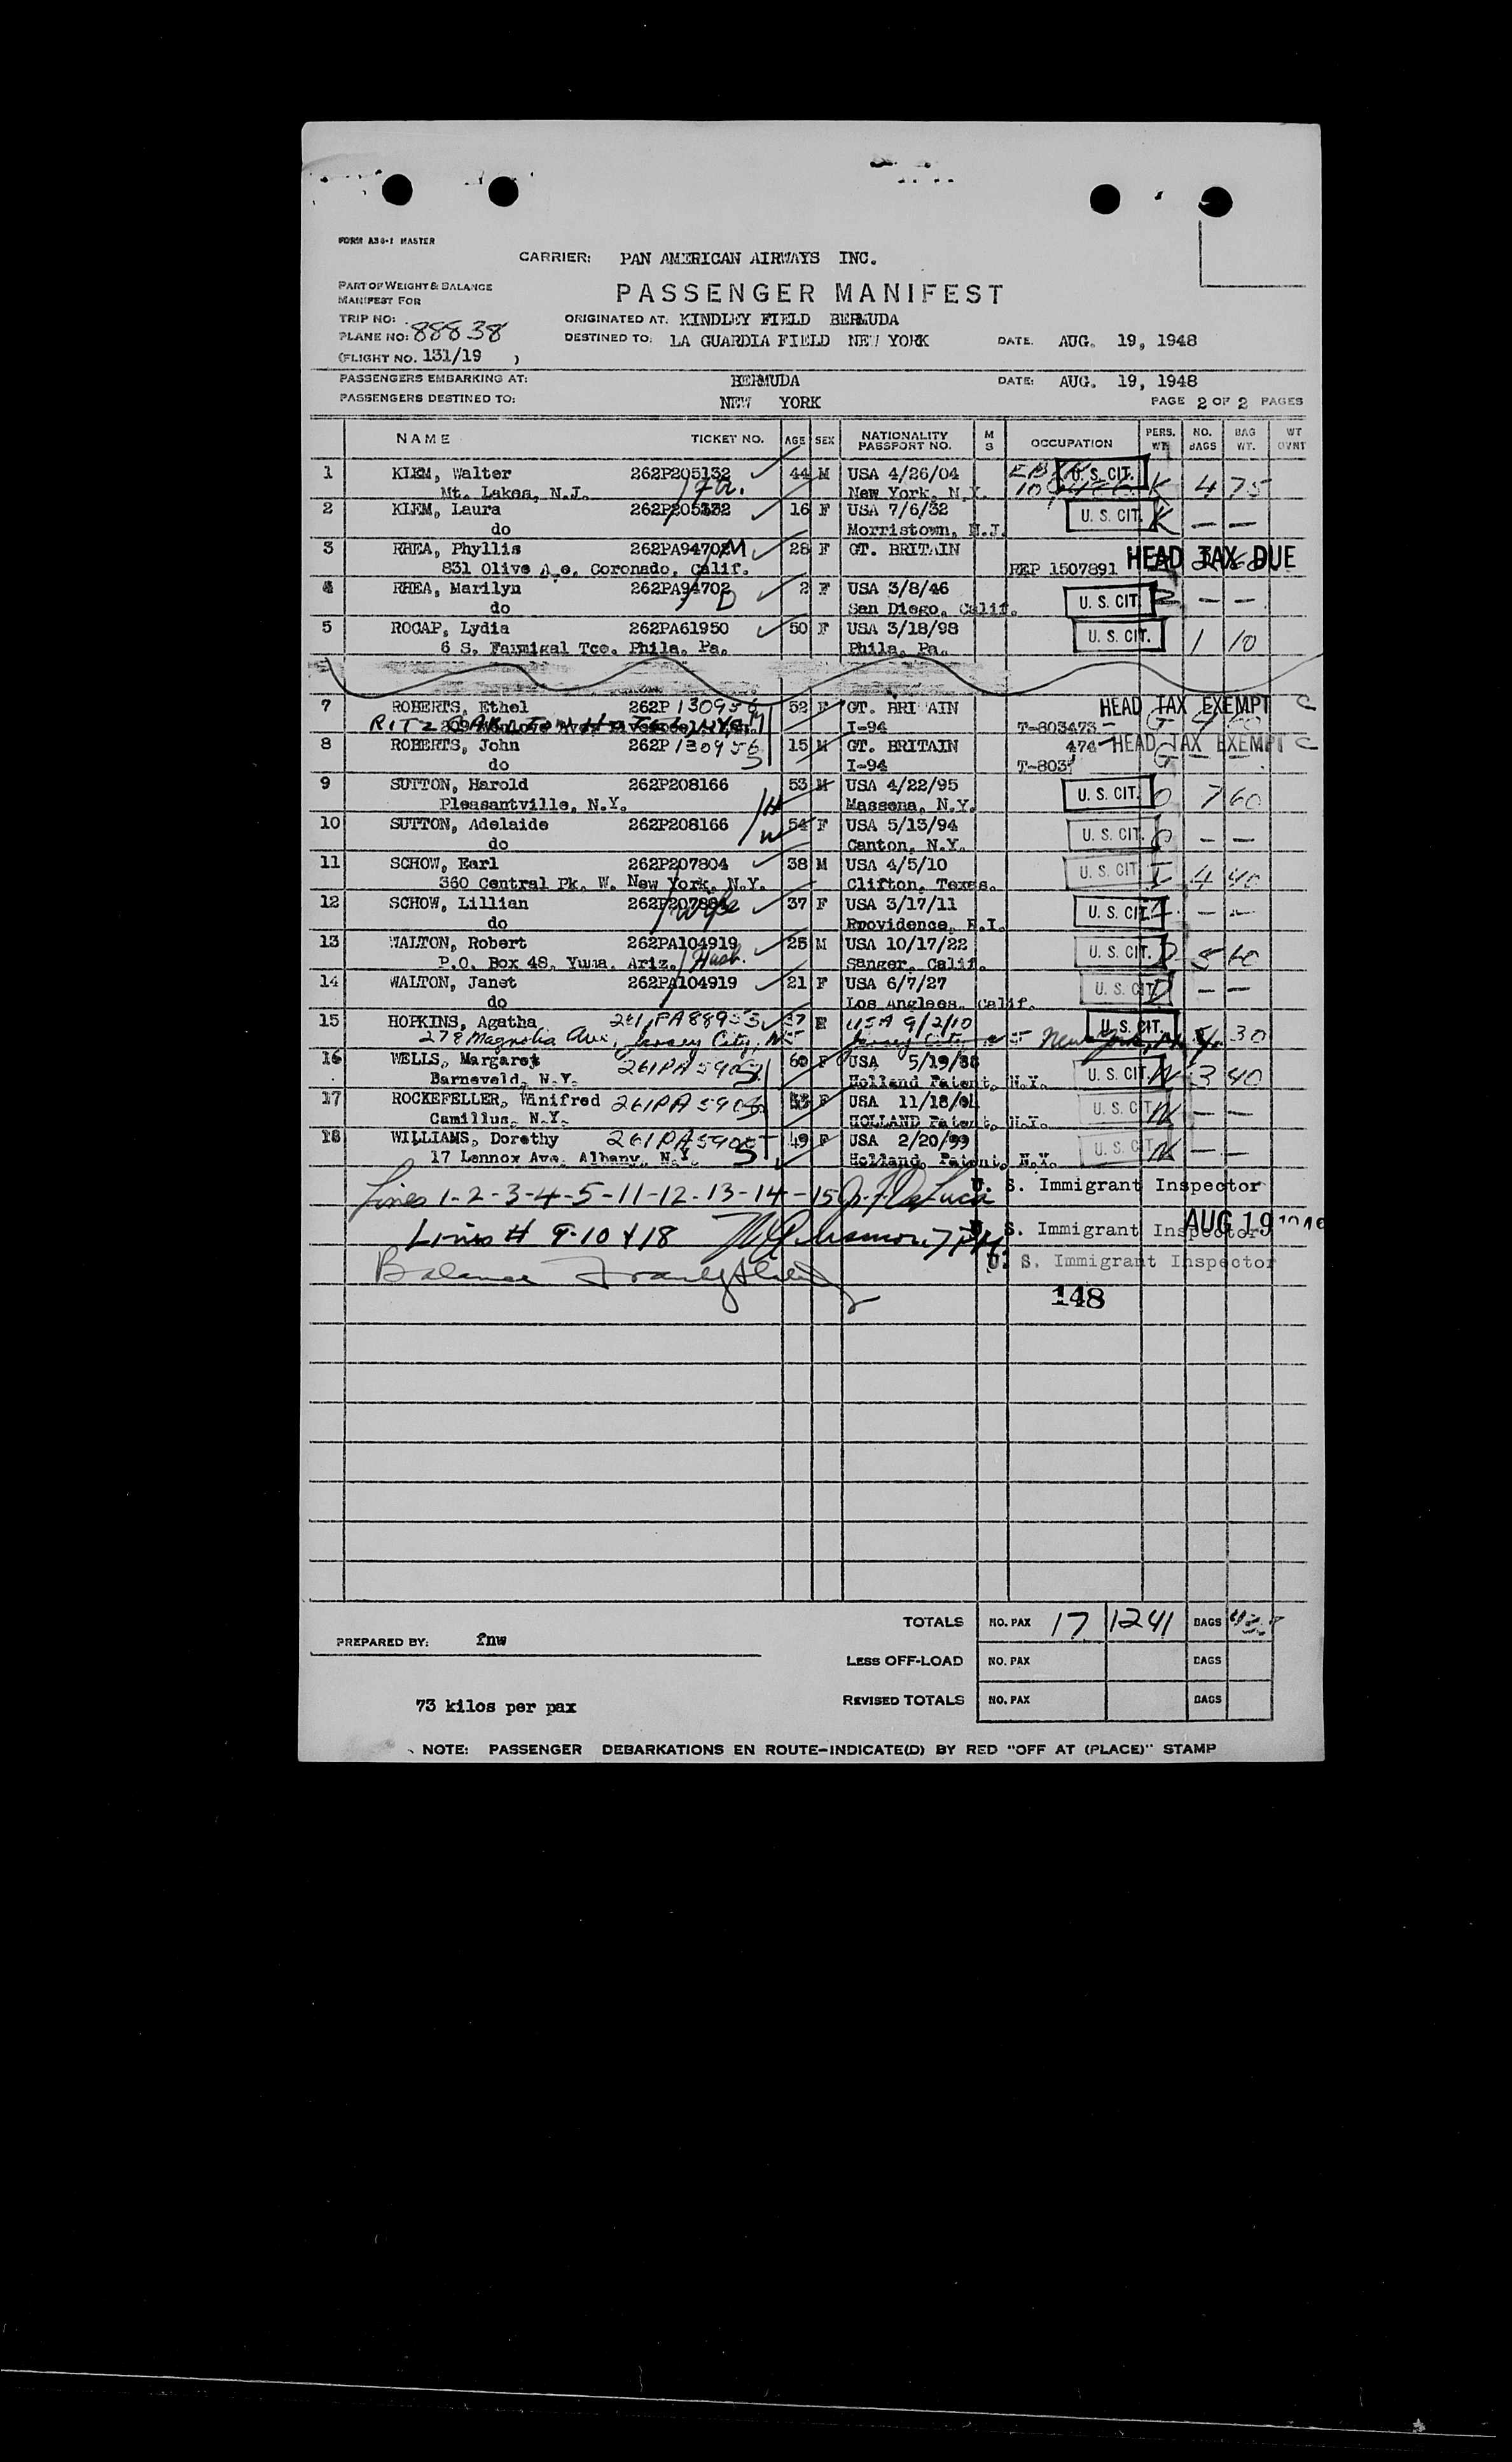 FORM A30-1 MASTER
CARRIER: PAN AMERICAN AIRWAYS INC.
PART OF WEIGHT & BALANCE
MANIFEST FOR
PASSENGER MANIFEST
TRIP NO:
ORIGINATED AT. KINDLEY FIELD BERMUDA
PLANE NO: 88838
DESTINED TO: LA GUARDIA FIELD NEW YORK DATE. AUG. 19, 1948
(FLIGHT NO. 131/19 )
PASSENGERS EMBARKING AT: BERMUDA DATE: AUG. 19, 1948
PASSENGERS DESTINED TO: NEW YORK PAGE 2 OF 2 PAGES
NAME TICKET NO. AGE SEX NATIONALITY PASSPORT NO. M S OCCUPATION PERS. WT. NO. BAGS BAG WT. WT OVNT
1 KLEM, Walter 262P205132 44 M USA 4/26/04 U. S. CIT. K 4 75
Mt. Lakes, N.J. New York, N.Y.
2 KLEM, Laura 262P205132 16 F USA 7/6/32 U. S. CIT. K — —
do Morristown, N.J.
3 RHEA, Phyllis 262PA94702 M 28 F GT. BRITAIN HEAD TAX DUE
831 Olive A e. Coronado, Calif. REP 1507891
4 RHEA, Marilyn 262PA94702 D 2 F USA 3/8/46 U. S. CIT. — —
do San Diego, Calif.
5 ROGAP, Lydia 262PA61950 50 F USA 3/18/98 U. S. CIT. 1 10
6 S. Farmigal Tce. Phila. Pa. Phila. Pa.
7 ROBERTS, Ethel 262P 130956 52 F GT. BRI AIN HEAD TAX EXEMPT C
RITZ CARLTON HOTEL, NYC I-94 T-803473
8 ROBERTS, John 262P 130956 15 M GT. BRITAIN 474 HEAD TAX EXEMPT C
do S I-94 T-803
9 SUTTON, Harold 262P208166 53 M USA 4/22/95 U. S. CIT. O 7 60
Pleasantville, N.Y. H Massena, N.Y.
10 SUTTON, Adelaide 262P208166 54 F USA 5/13/94 U. S. CIT. O — —
do W Canton, N.Y.
11 SCHOW, Earl 262P207804 38 M USA 4/5/10 U. S. CIT. I 4 40
360 Central Pk. W. New York, N.Y. Clifton, Texas.
12 SCHOW, Lillian 262P207804 Wife 37 F USA 3/17/11 U. S. CIT. I — —
do Rpovidence, R.I.
13 WALTON, Robert 262PA104919 25 M USA 10/17/22 U. S. CIT. D 5 60
P.O. Box 48, Yuma, Ariz. Husb. Sanger, Calif.
14 WALTON, Janet 262PA104919 21 F USA 6/7/27 U. S. CIT. D — —
do Los Anglees, Calif.
15 HOPKINS, Agatha 261PA88953 37 F USA 9/2/10 U. S. CIT. 30
278 Magnolia Ave., Jersey City, NJ Jersey City New York, N.Y.
16 WELLS, Margaret 261PA5905 60 F USA 5/19/88 U. S. CIT. N 3 40
Barneveld, N.Y. Holland Patent, N.Y.
17 ROCKEFELLER, Winifred 261PA5905 53 F USA 11/18/94 U. S. CIT. N — —
Camillus, N.Y. HOLLAND Patent, N.Y.
18 WILLIAMS, Dorothy 261PA5905 49 F USA 2/20/99 U. S. CIT. N — —
17 Lennox Ave. Albany, N.Y. S Holland, Patent, N.Y.
Lines 1-2-3-4-5-11-12-13-14-15 J. F. DeLuca U. S. Immigrant Inspector
Lines # 9-10 & 18 U. S. Immigrant Inspector AUG 19 1948
Balance U. S. Immigrant Inspector
148
TOTALS NO. PAX 17 1241 BAGS
PREPARED BY: fnw
LESS OFF-LOAD NO. PAX BAGS
73 kilos per pax REVISED TOTALS NO. PAX BAGS
NOTE: PASSENGER DEBARKATIONS EN ROUTE-INDICATE(D) BY RED "OFF AT (PLACE)" STAMP